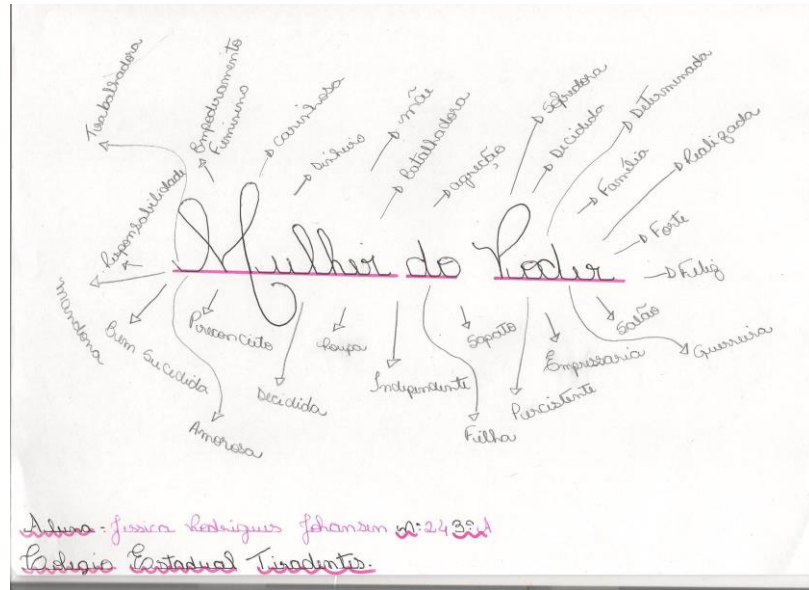 Trabalhadora
Empoderamento
Feminino
carinhosa
Dinheiro
mãe
batalhadora
agreção
Sofredora
Decidida
Determinada
Família
Realizada
Forte
Feliz
Responsabilidade
Mulher do Poder
mandona
Bem Sucedida
Preconceito
Amorosa
Decidida
Roupa
Independente
Sapato
Filha
Percistente
Empressaria
Salão
Guerreira
Aluna: Jessica Rodrigues Johansen nº:24 3º:A
Colegio Estadual Tiradentes.